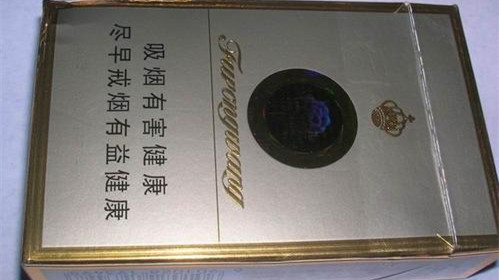 Furongwang
吸烟有害健康
尽早戒烟有益健康